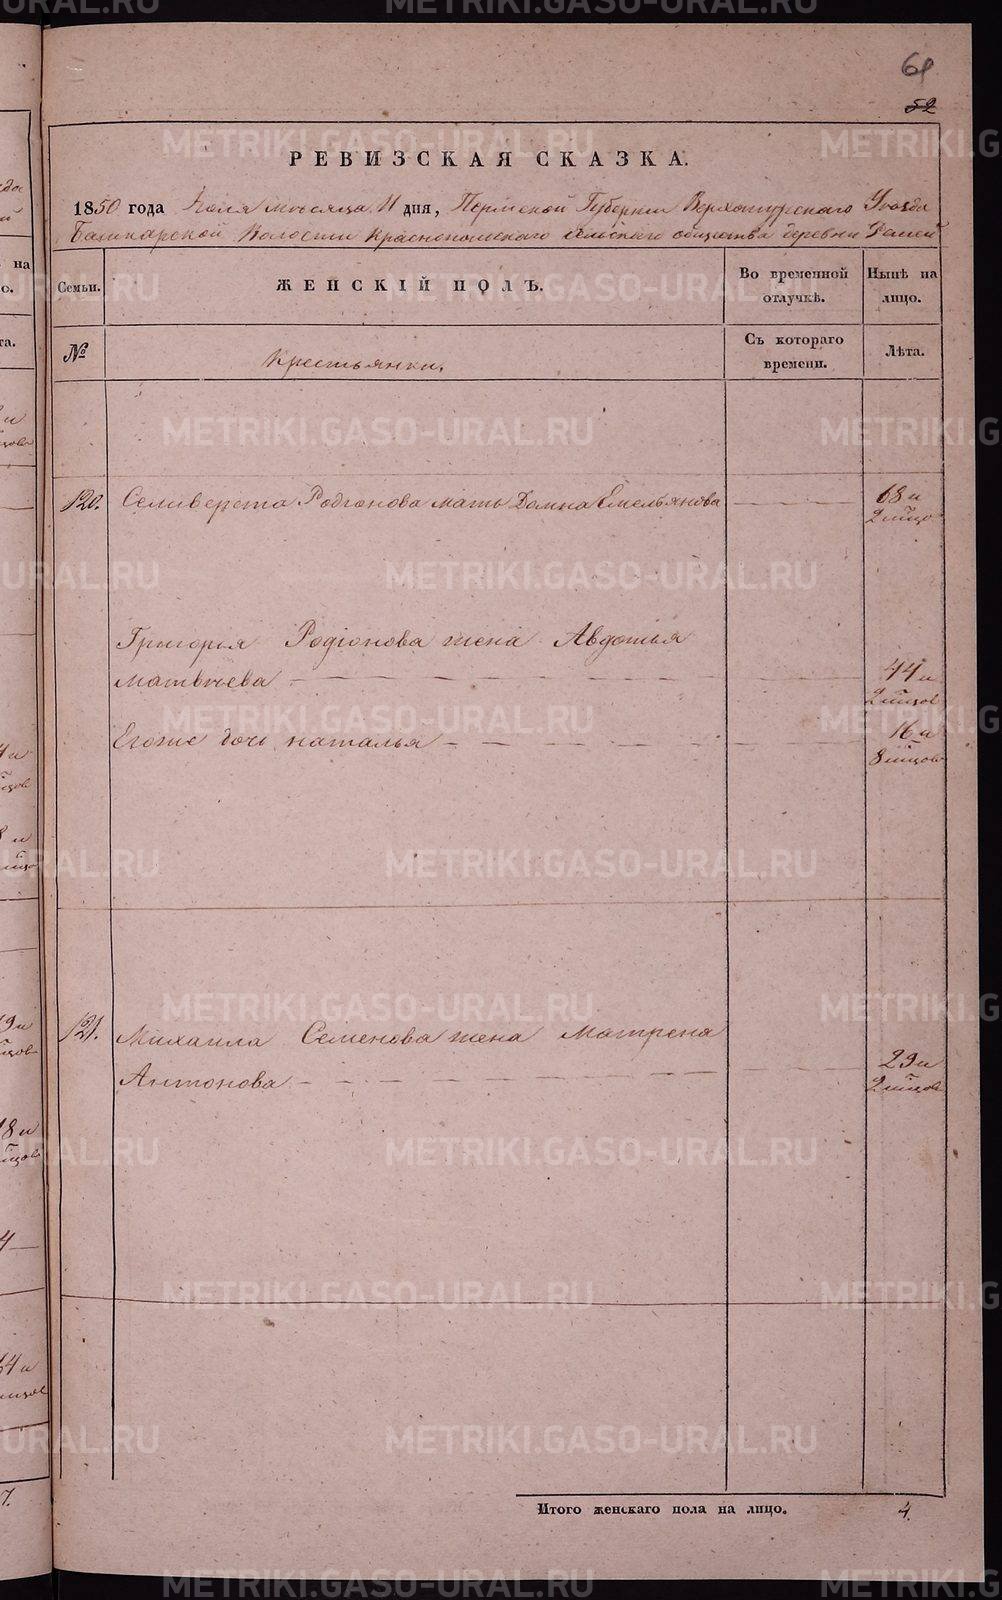 61
52
РЕВИЗСКАЯ СКАЗКА.
1850 года Іюля месяца 11 дня, Пермской Губерніи Верхотурскаго Уезда
Башкарской Волости Краснопольскаго сельскаго общества деревни
Семьи. ЖЕНСКІЙ ПОЛЪ. Во временной отлучкѣ. Нынѣ на лицо.
№ Крестьянки. Съ котораго времени. Лѣта.
120. Селиверста Родіонова мать Домна Емельянова 68 и
2 мцов
Григорья Родіонова жена Авдотья
Матвѣева 44 и
2 мцов
Егоже дочь наталья 16 и
8 мцов
121. Михаила Семенова жена Матрена
Антонова 29 и
2 мцов
Итого женскаго пола на лицо. 4.
METRIKI.GASO-URAL.RU